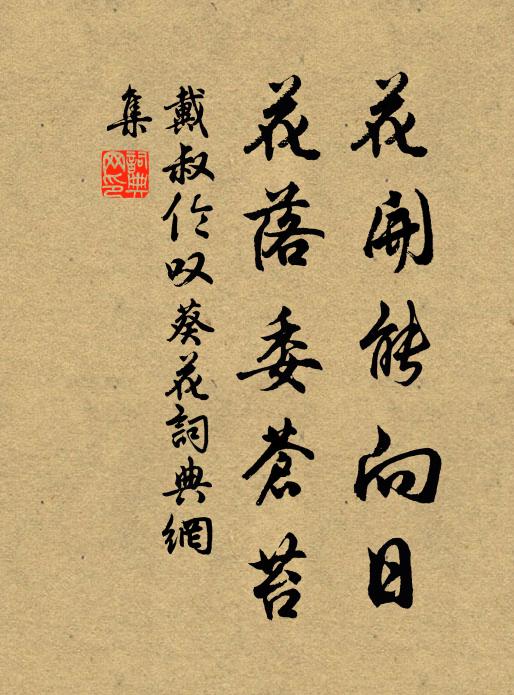 花開能向日
花落委蒼苔
戴叔伦叹葵花詞典網
集
詞典
网印